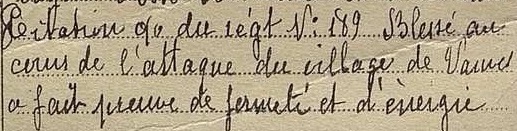 Citation go du régt No: 189 Blessé au
cours de l'attaque du village de
a fait preuve de fermeté et d'énergie